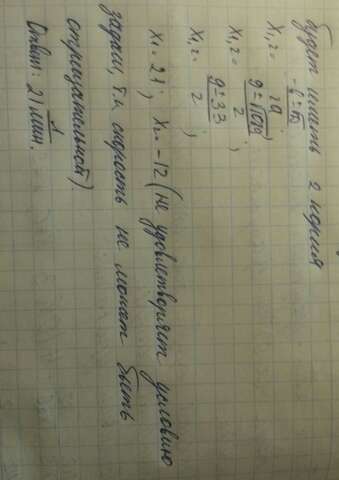 будет иметь 2 корня
x₁,₂ = (-b ± √D)/2a ;
x₁,₂ = (9 ± √1089)/2 ;
x₁,₂ = (9 ± 33)/2 ;
x₁ = 21 ; x₂ = -12 (не удовлетворяет условию
задачи, т.к. скорость не может быть
отрицательной)
Ответ: 21 мин.